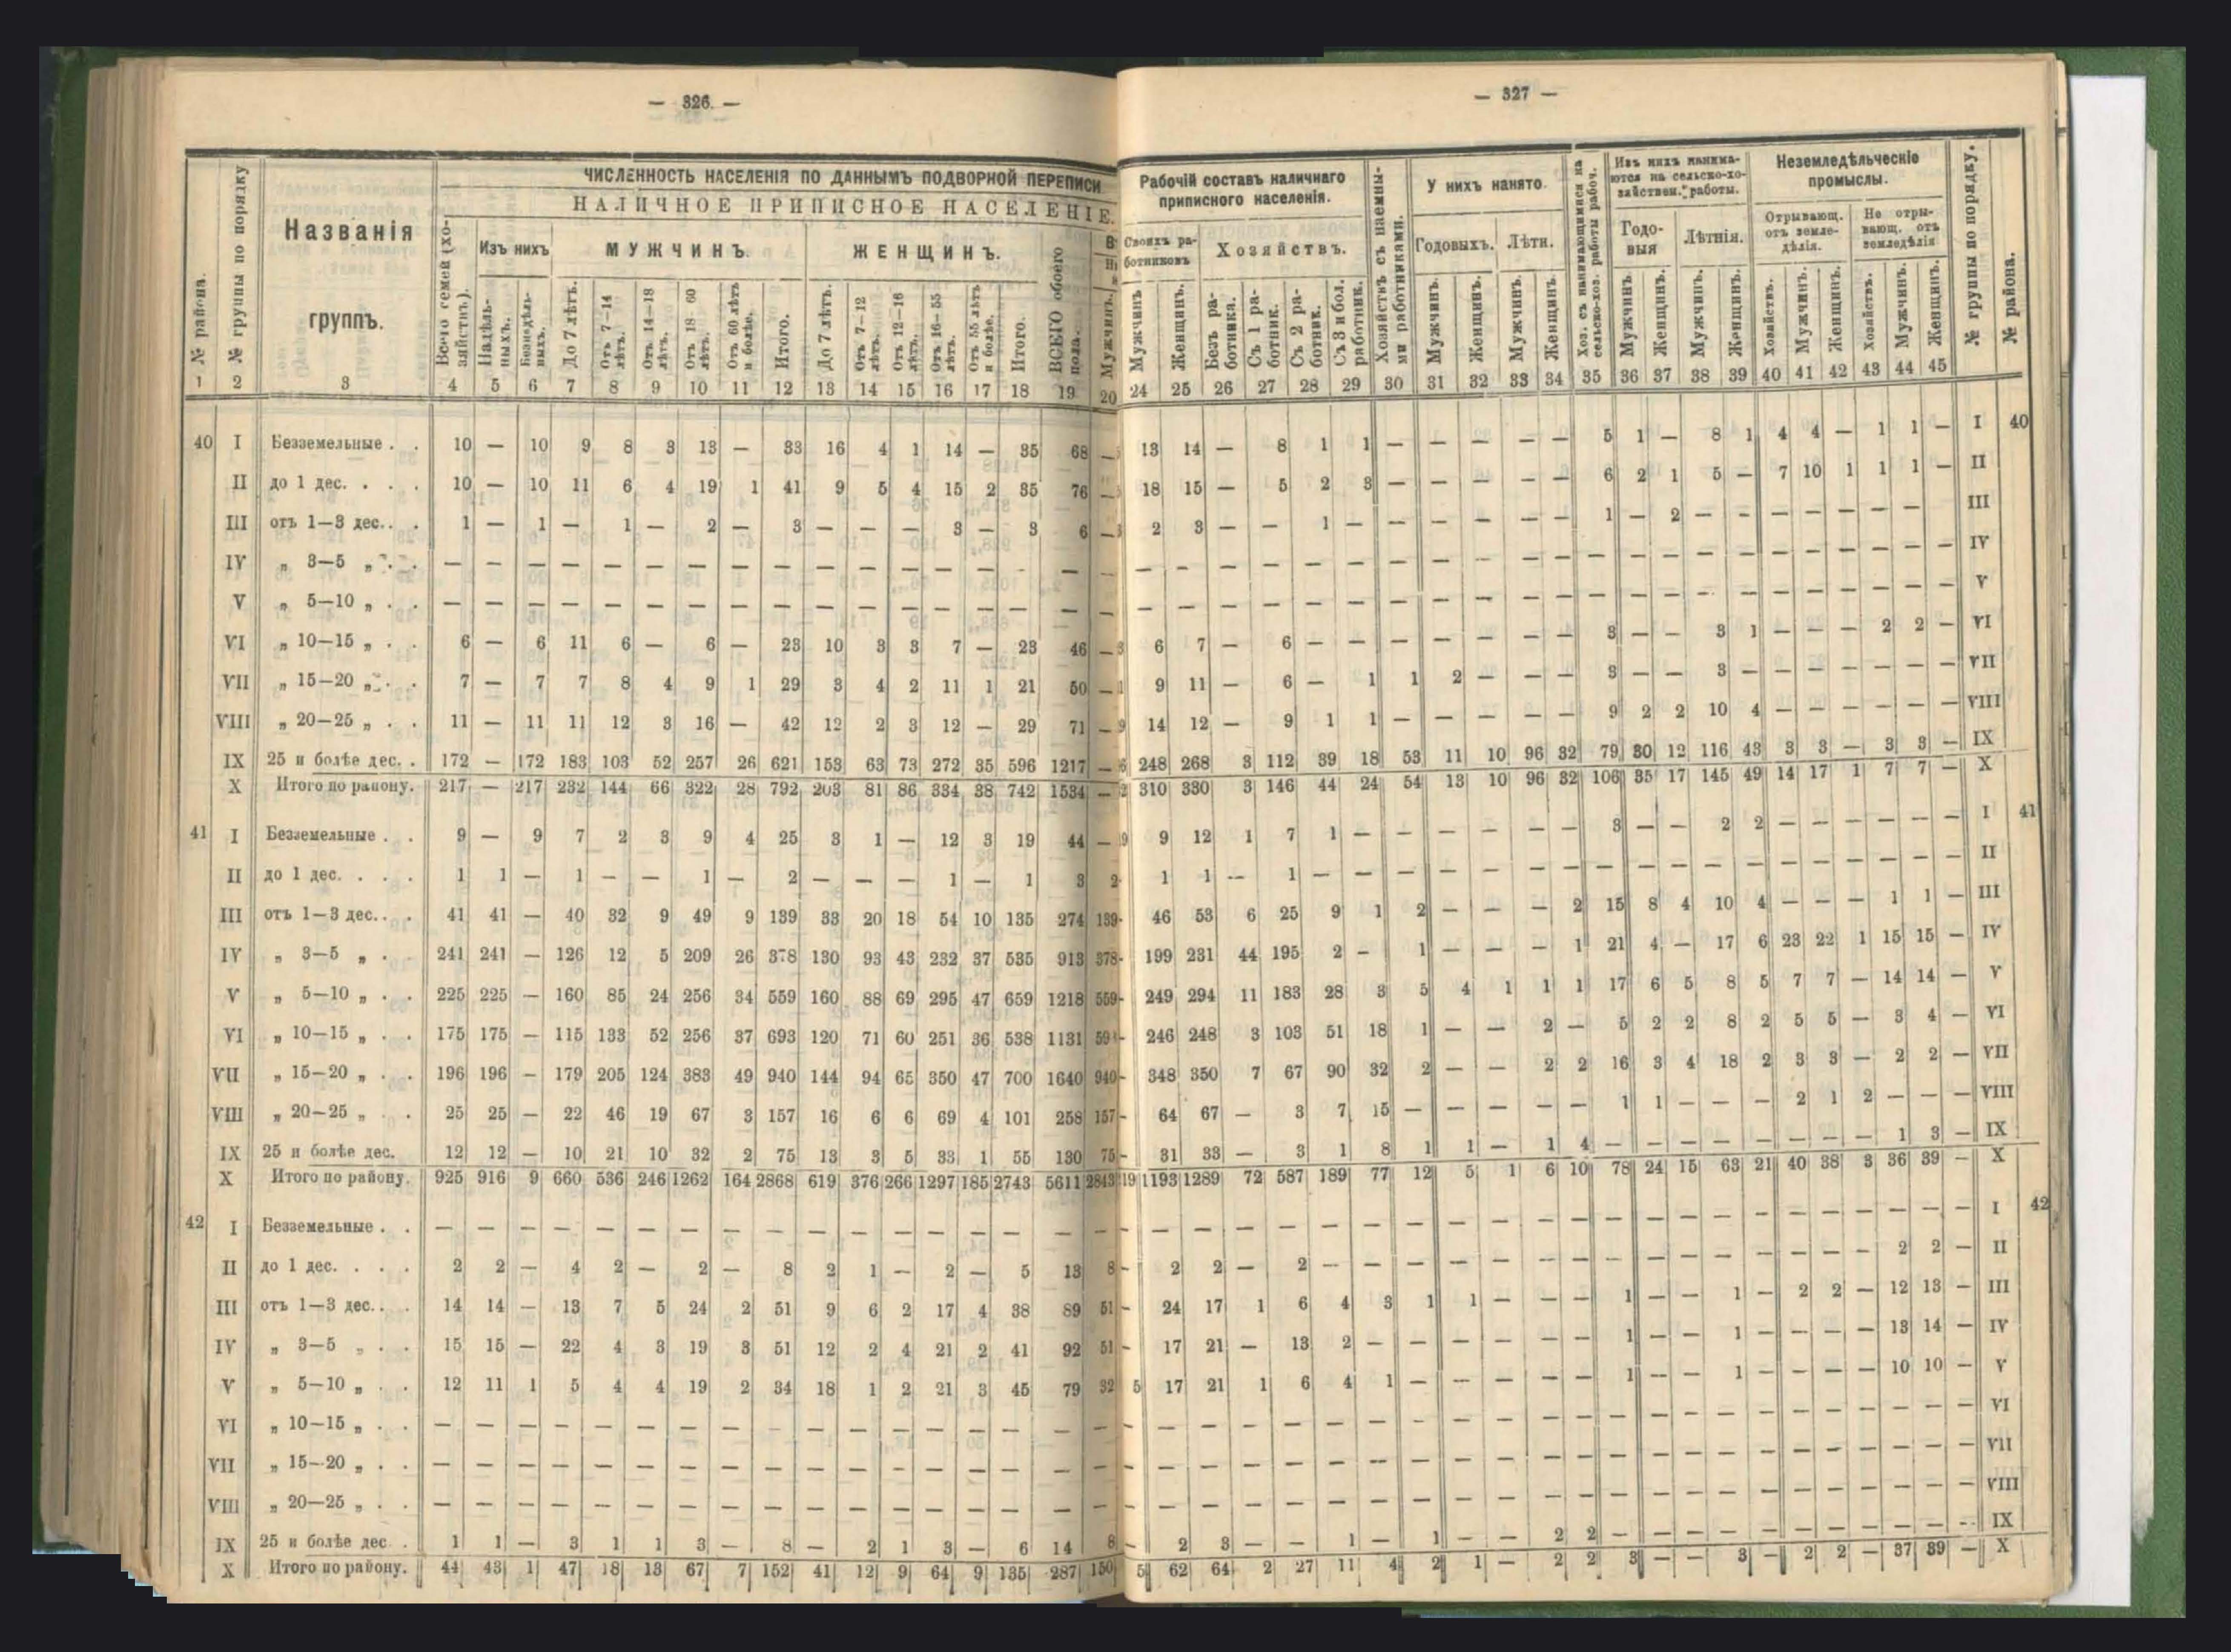 — 326 —
ЧИСЛЕННОСТЬ НАСЕЛЕНІЯ ПО ДАННЫМЪ ПОДВОРНОЙ ПЕРЕПИСИ
НАЛИЧНОЕ ПРИПИСНОЕ НАСЕЛЕНІЕ.
№ района. № группы по порядку Названія группъ. Всего семей (хозяйствъ). Изъ нихъ МУЖЧИНЪ. ЖЕНЩИНЪ. ВСЕГО обоего пола.
Надѣльныхъ. Безнадѣльныхъ. До 7 лѣтъ. Отъ 7—14 лѣтъ. Отъ 14—18 лѣтъ. Отъ 18—60 лѣтъ. Отъ 60 лѣтъ и болѣе. Итого. До 7 лѣтъ. Отъ 7—12 лѣтъ. Отъ 12—16 лѣтъ. Отъ 16—55 лѣтъ. Отъ 55 лѣтъ и болѣе. Итого. Мужчинъ.
1 2 3 4 5 6 7 8 9 10 11 12 13 14 15 16 17 18 19 20
40 I Безземельные . . 10 — 10 9 8 3 13 — 33 16 4 1 14 — 35 68 —
II до 1 дес. . . . 10 — 10 11 6 4 19 1 41 9 5 4 15 2 35 76 —
III отъ 1—3 дес. . . 1 — 1 — 1 — 2 — 3 — — — 3 — 3 6 —
IV „ 3—5 „ . . — — — — — — — — — — — — — — - — —
V „ 5—10 „ . . — — — — — — — — — — — — — — — — —
VI „ 10—15 „ . . 6 — 6 11 6 — 6 — 23 10 3 3 7 — 23 46 —
VII „ 15—20 „ . . 7 — 7 7 8 4 9 1 29 3 4 2 11 1 21 50 —
VIII „ 20—25 „ . . 11 — 11 11 12 3 16 — 42 12 2 3 12 — 29 71 —
IX 25 и болѣе дес. . 172 — 172 183 103 52 257 26 621 153 63 73 272 35 596 1217 —
X Итого по раиону. 217 — 217 232 144 66 322 28 792 203 81 86 334 38 742 1534 —
41 I Безземельные . . 9 — 9 7 2 3 9 4 25 3 1 — 12 3 19 44 —
II до 1 дес. . . . 1 1 — 1 — — 1 — 2 — — — 1 — 1 3 2
III отъ 1—3 дес. . . 41 41 — 40 32 9 49 9 139 33 20 18 54 10 135 274 139
IV „ 3—5 „ . . 241 241 — 126 12 5 209 26 378 130 93 43 232 37 535 913 378
V „ 5—10 „ . . 225 225 — 160 85 24 256 34 559 160 88 69 295 47 659 1218 559
VI „ 10—15 „ . . 175 175 — 115 133 52 256 37 693 120 71 60 251 36 538 1131
VII „ 15—20 „ . . 196 196 — 179 205 124 383 49 940 144 94 65 350 47 700 1640 940
VIII „ 20—25 „ . . 25 25 — 22 46 19 67 3 157 16 6 6 69 4 101 258 157
IX 25 и болѣе дес. 12 12 — 10 21 10 32 2 75 13 3 5 33 1 55 130 75
X Итого по району. 925 916 9 660 536 246 1262 164 2868 619 376 266 1297 185 2743 5611 2843
42 I Безземельные . . — — — — — — — — — — — — — — — — —
II до 1 дес. . . . 2 2 — 4 2 — 2 — 8 2 1 — 2 — 5 13 8
III отъ 1—3 дес. . . 14 14 — 13 7 5 24 2 51 9 6 2 17 4 38 89 51
IV „ 3—5 „ . . 15 15 — 22 4 3 19 3 51 12 2 4 21 2 41 92 51
V „ 5—10 „ . . 12 11 1 5 4 4 19 2 34 18 1 2 21 3 45 79 32
VI „ 10—15 „ . . — — — — — — — — — — — — — — — — —
VII „ 15—20 „ . . — — — — — — — — — — — — — — — — —
VIII „ 20—25 „ . . — — — — — — — — — — — — — — — — —
IX 25 и болѣе дес . 1 1 — 3 1 1 3 — 8 — 2 1 3 — 6 14 8
X Итого по району. 44 43 1 47 18 13 67 7 152 41 12 9 64 9 135 287 150
— 327 —
Рабочій составъ наличнаго приписного населенія. Хозяйствъ съ наемными работниками. У нихъ нанято. Хоз. съ нанимающимися на сельско-хоз. работы рабоч. Изъ нихъ нанимаются на сельско-хозяйствен. работы. Неземледѣльческіе промыслы. № группы по порядку. № района.
Своихъ работниковъ Хозяйствъ. Годовыхъ. Лѣтн. Годовыя Лѣтнія. Отрывающ. от земледѣлія. Не отрывающ. отъ земледѣлія
Мужчинъ. Женщинъ. Безъ работника. Съ 1 работник. Съ 2 работник. Съ 3 и бол. работник. Мужчинъ. Женщинъ. Мужчинъ. Женщинъ. Мужчинъ. Женщинъ. Мужчинъ. Женщинъ. Хозяйствъ. Мужчинъ. Женщинъ. Хозяйствъ. Мужчинъ. Женщинъ.
24 25 26 27 28 29 30 31 32 33 34 35 36 37 38 39 40 41 42 43 44 45
13 14 — 8 1 1 — — — — — 5 1 — 8 1 4 4 — 1 1 — I 40
18 15 — 5 2 3 — — — — — 6 2 1 5 — 7 10 1 1 1 — II
2 3 — — 1 — — — — — — 1 — 2 — — — — — — — III
— — — — — — — — — — — — — — — — — — — — — — IV
— — — — — — — — — — — — — — — — — — — — — — V
6 7 — 6 — — — — — — — 3 — — 3 1 — — — 2 2 — VI
9 11 — 6 — 1 1 2 — — — 3 — — 3 — — — — — — — VII
14 12 — 9 1 1 — — — — — 9 2 2 10 4 — — — — — — VIII
248 268 3 112 39 18 53 11 10 96 32 79 30 12 116 43 3 3 — 3 3 — IX
310 330 3 146 44 24 54 13 10 96 32 106 35 17 145 49 14 17 1 7 7 — X
9 12 1 7 1 — — — — — — 3 — — 2 2 — — — — — — I 41
1 1 — 1 — — — — — — — — — — — — — — — — — — II
46 53 6 25 9 1 2 — — — 2 15 8 4 10 4 — — — 1 1 — III
199 231 44 195 2 — 1 — — — 1 21 4 — 17 6 23 22 1 15 15 — IV
249 294 11 183 28 3 5 4 1 1 1 17 6 5 8 5 7 7 — 14 14 — V
246 248 3 103 51 18 1 — — 2 — 5 2 2 8 2 5 5 — 3 4 — VI
348 350 7 67 90 32 2 — — 2 2 16 3 4 18 2 3 3 — 2 2 — VII
64 67 — 3 7 15 — — — — — 1 1 — — — 2 1 2 — — — VIII
31 33 — 3 1 8 1 1 — 1 4 — — — — — — — — 1 3 — IX
1193 1289 72 587 189 77 12 5 1 6 10 78 24 15 63 21 40 38 3 36 39 — X
— — — — — — — — — — — — — — — — — — — — — — I 42
2 2 — 2 — — — — — — — — — — — — — — — 2 2 — II
24 17 1 6 4 3 1 1 — — — 1 — — 1 — 2 2 — 12 13 — III
17 21 — 13 2 — — — — — — 1 — — 1 — — — — 13 14 — IV
5 17 21 1 6 4 1 — — — — — 1 — — 1 — — — — 10 10 — V
— — — — — — — — — — — — — — — — — — — — — — VI
— — — — — — — — — — — — — — — — — — — — — — VII
— — — — — — — — — — — — — — — — — — — — — — VIII
2 3 — — 1 — 1 — — 2 2 — — — — — — — — — — — IX
5 62 64 2 27 11 4 2 1 — 2 2 3 — — 3 — 2 2 — 37 39 — X